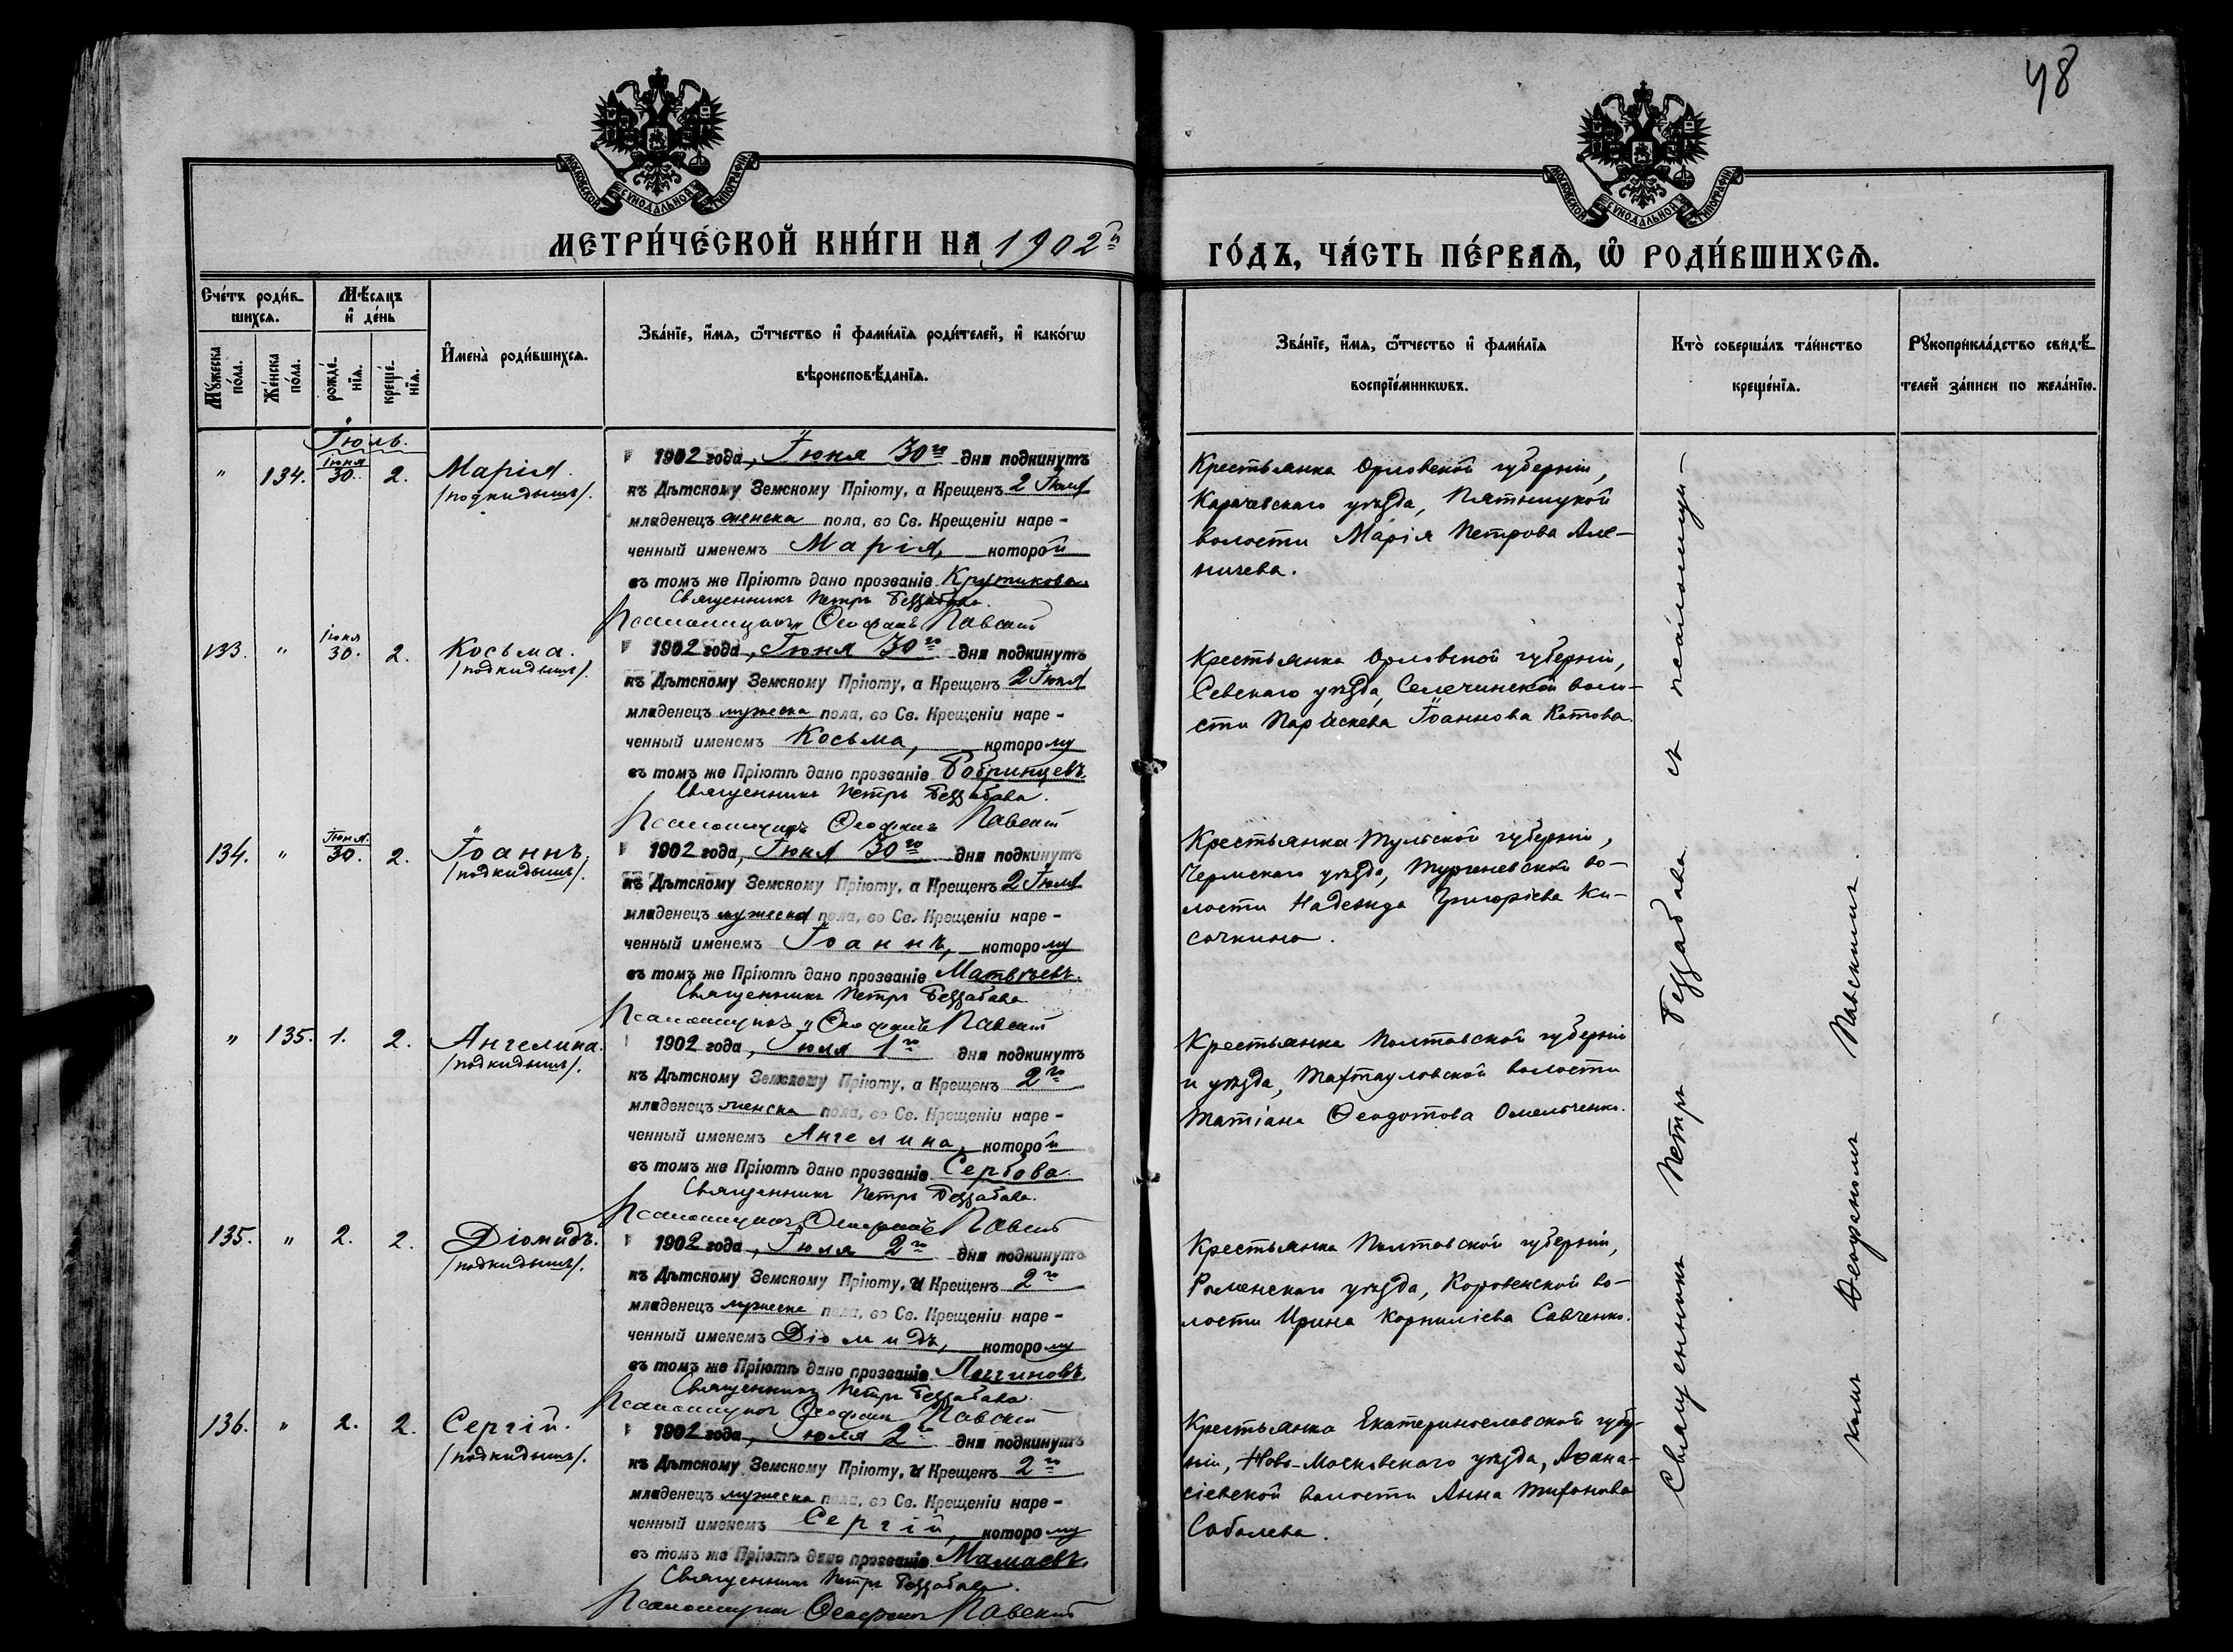 48
МОСКОВСКОЙ СѴНОДАЛЬНОЙ ТИПОГРАФІИ
МОСКОВСКОЙ СѴНОДАЛЬНОЙ ТИПОГРАФІИ
МЕТРИ́ЧЕСКОЙ КНИ́ГИ НА 1902й
ГО́ДЪ, ЧА́СТЬ ПЕ́РВАѦ, Ѡ҆ РОДИ́ВШИХСѦ.
Сче́тъ роди́в-
шихсѧ.
Мѣ́сяцъ
и҆ де́нь
Мꙋ́жеска
по́ла.
Же́нска
по́ла.
рожде́-
нїѧ.
креще́-
нїѧ.
И҆мена̀ роди́вшихсѧ.
Зва́нїе, и҆́мѧ, ѻ҆́тчество и҆ фами́лїѧ роди́телей, и҆ како́гѡ
вѣроисповѣ́данїѧ.
Зва́нїе, и҆́мѧ, ѻ҆́тчество и҆ фами́лїѧ
воспрїе́мникѡвъ.
Кто̀ соверша́лъ та́инство
креще́нїѧ.
Рꙋкоприкла́дство свидѣ́-
телей за́писи по жела́нїю.
Іюль.
" 134. іюня 30. 2. Марія.
/подкидышъ/.
1902 года, Іюня 30го дня подкинутъ
къ Дѣтскому Земскому Пріюту, а Крещенъ 2 Іюля
младенецъ женска пола, во Св. Крещеніи наре-
ченный именемъ Марія, которой
въ томъ же Пріютѣ дано прозваніе Крутикова.
Священникъ Петръ Беззабава.
Псаломщикъ Ѳеофанъ Павскій
Крестьянка Орловской губерніи,
Карачевскаго уѣзда, Пятницкой
волости Марія Петрова Але-
ничева.
133. " іюня 30. 2. Косьма.
/подкидышъ/.
1902 года, Іюня 30го дня подкинутъ
къ Дѣтскому Земскому Пріюту, а Крещенъ 2 Іюля
младенецъ мужеска пола, во Св. Крещеніи наре-
ченный именемъ Косьма, которому
въ томъ же Пріютѣ дано прозваніе Бобринцевъ.
Священникъ Петръ Беззабава.
Псаломщикъ Ѳеофанъ Павскій
Крестьянка Орловской губерніи,
Севскаго уѣзда, Селечинской воло-
сти Параскева Іоаннова Котова.
134. " Іюня 30. 2. Іоаннъ.
/подкидышъ/.
1902 года, Іюня 30го дня подкинутъ
къ Дѣтскому Земскому Пріюту, а Крещенъ 2 Іюля
младенецъ мужеска пола, во Св. Крещеніи наре-
ченный именемъ Іоаннъ, которому
въ томъ же Пріютѣ дано прозваніе Матвѣевъ.
Священникъ Петръ Беззабава
Псаломщикъ Ѳеофанъ Павскій
Крестьянка Тульской губерніи,
Чернскаго уѣзда, Тургеневской во-
лости Надежда Григоріева Ки-
сочкина.
" 135. 1. 2. Ангелина.
/подкидышъ/.
1902 года, Іюля 1го дня подкинутъ
къ Дѣтскому Земскому Пріюту, а Крещенъ 2го
младенецъ женска пола, во Св. Крещеніи наре-
ченный именемъ Ангелина, которой
въ томъ же Пріютѣ дано прозваніе Сербова.
Священникъ Петръ Беззабава.
Псаломщикъ Ѳеофанъ Павскій
Крестьянка Полтавской губерніи
и уѣзда, Тахтауловской волости
Татіана Ѳеодотова Омельченко.
135. " 2. 2. Діомидъ.
/подкидышъ/.
1902 года, Іюля 2го дня подкинутъ
къ Дѣтскому Земскому Пріюту, и Крещенъ 2го
младенецъ мужеска пола, во Св. Крещеніи наре-
ченный именемъ Діомидъ, которому
въ томъ же Пріютѣ дано прозваніе Логгиновъ.
Священникъ Петръ Беззабава.
Псаломщикъ Ѳеофанъ Павскій
Крестьянка Полтавской губерніи,
Роменскаго уѣзда, Коровенской во-
лости Ирина Корниліева Савченко.
136. " 2. 2. Сергій.
/подкидышъ/.
1902 года, Іюля 2го дня подкинутъ
къ Дѣтскому Земскому Пріюту, и Крещенъ 2го
младенецъ мужеска пола, во Св. Крещеніи наре-
ченный именемъ Сергій, которому
въ томъ же Пріютѣ дано прозваніе Мамаевъ.
Священникъ Петръ Беззабава.
Псаломщикъ Ѳеофанъ Павскій
Крестьянка Екатеринославской губер-
ніи, Ново-Московскаго уѣзда, Аѳана-
сіевской волости Анна Тифонова
Соболева.
Священникъ Петръ Беззабава съ псаломщи-
комъ Ѳеофаномъ Павскимъ.